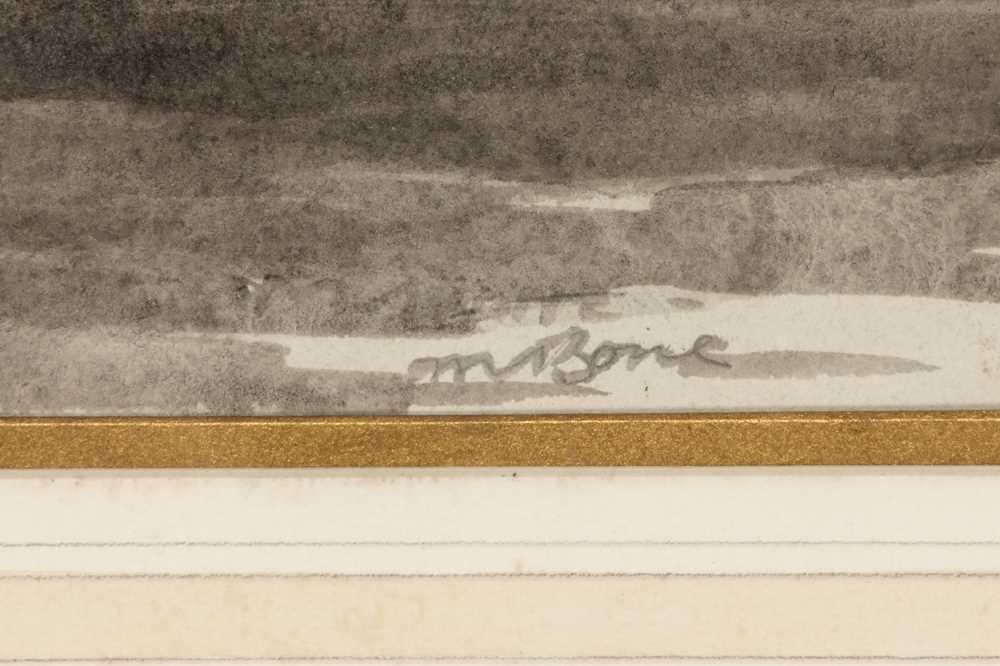 m Bone